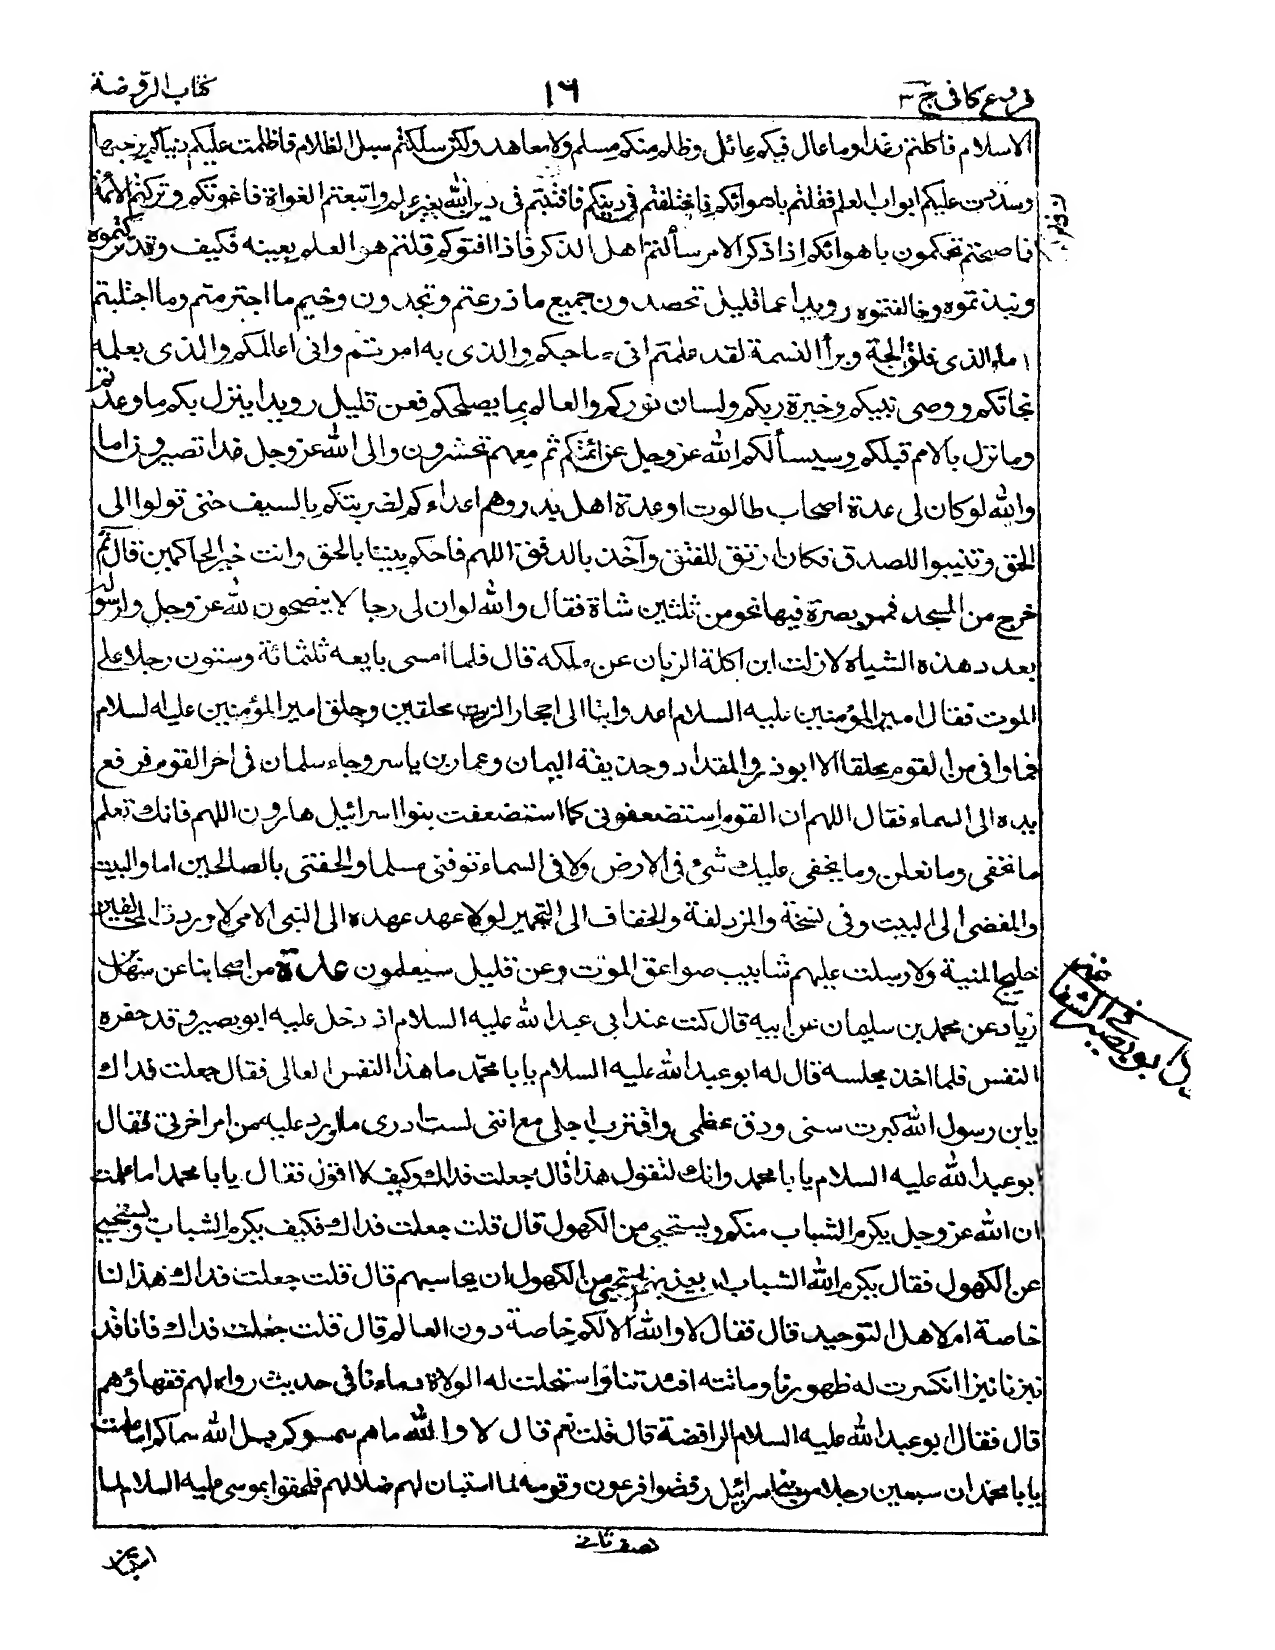 فروع كافى ج ٣
١٦
كتاب الروضة
الاسلام فاكلتم رغدا وما عال فيكم عائل ولا ظلم منكم مسلم ولا معاهد ولكن سلكتم سبيل الظلام فاظلمت عليكم دنياكم برحبها
وسدت عليكم ابواب العلم فقلتم باهوائكم فاختلفتم فى دينكم فافتيتم فى دين الله بغير علم واتبعتم الغواة فاغوتكم وتركتم الائمة
فاصبحتم تحكمون باهوائكم اذا ذكر الامر سألتم اهل الذكر فاذا افتوكم قلتم هو العلم بعينه فكيف وقد تركتموه
ونبذتموه وخالفتموه رويدا عما قليل تحصدون جميع ما زرعتم وتجدون وخيم ما اجترمتم وما اجتلبتم
والذى فلق الحبة وبرأ النسمة لقد علمتم انى صاحبكم والذى به امرتم وانى عالمكم والذى بعلمه
نجاتكم ووصى نبيكم وخيرة ربكم ولسان نوركم والعالم بما يصلحكم فعن قليل رويدا ينزل بكم ما وعدتم
وما نزل بالامم قبلكم وسيسألكم الله عز وجل عن ائمتكم ثم معهم تحشرون والى الله عز وجل غدا تصيرون اما
والله لو كان لى عدة اصحاب طالوت او عدة اهل بدر وهم اعداءكم لضربتكم بالسيف حتى تولوا الى
الحق وتنيبوا للصدق فكان ارتق للفتق وآخذ بالرفق اللهم فاحكم بيننا بالحق وانت خير الحاكمين قال ثم
خرج من المسجد فمر بصرة فيها نحو من ثلثين شاة فقال والله لو ان لى رجالا ينصحون لله عز وجل ولرسوله
بعدد هذه الشياه لازلت ابن اكلة الزبان عن ملكه قال فلما امسى بايعه ثلثمائة وستون رجلا على
الموت فقال امير المؤمنين عليه السلام اعدوا بنا الى احجار الزيت محلقين وحلق امير المؤمنين عليه السلام
فما وافى من القوم محلقا الا ابوذر والمقداد وحذيفة اليمان وعمار بن ياسر وجاء سلمان فى اخر القوم فرفع
يده الى السماء فقال اللهم ان القوم استضعفونى كما استضعفت بنوا اسرائيل هارون اللهم فانك تعلم
ما نخفى وما نعلن وما يخفى عليك شئ فى الارض ولا فى السماء توفنى مسلما والحقنى بالصالحين اما والبيت
والمفضى الى البيت وفى نسخة والمزدلفة والخفاف الى التجمير لولا عهد عهده الى النبى الامى لاوردت المخالفين
خليج المنية ولارسلت عليهم شابيب صواعق الموت وعن قليل سيعلمون عدة من اصحابنا عن سهل بن
زياد عن محمد بن سليمان عن ابيه قال كنت عند ابى عبد الله عليه السلام اذ دخل عليه ابو بصير وقد حفزه
النفس فلما اخذ مجلسه قال له ابو عبد الله عليه السلام يا با محمد ما هذا النفس العالى فقال جعلت فداك
يابن رسول الله كبرت سنى ودق عظمى واقترب اجلى مع اننى لست ادرى ما ارد عليه من امر اخرتى فقال
ابو عبد الله عليه السلام يا با محمد وانك لتقول هذا قال جعلت فداك وكيف لا اقول فقال يا با محمد اما علمت
ان الله عز وجل يكرم الشباب منكم ويستحيى من الكهول قال قلت جعلت فداك فكيف يكرم الشباب ويستحيى
عن الكهول فقال يكرم الله الشباب ان يعذبهم ويستحيى من الكهول ان يحاسبهم قال قلت جعلت فداك هذا لنا
خاصة ام لاهل التوحيد قال فقال لا والله الا لكم خاصة دون العالم قال قلت جعلت فداك فانا قد
نبزنا نبزا انكسرت له ظهورنا وماتت له افئدتنا واستحلت له الولاة دماءنا فى حديث رواه لهم فقهاؤهم
قال فقال ابو عبد الله عليه السلام الرافضة قال قلت نعم قال لا والله ما هم سموكم بل الله سماكم اما علمت
يا با محمد ان سبعين رجلا من بنى اسرائيل رفضوا فرعون وقومه لما استبان لهم ضلالهم فلحقوا بموسى عليه السلام لما